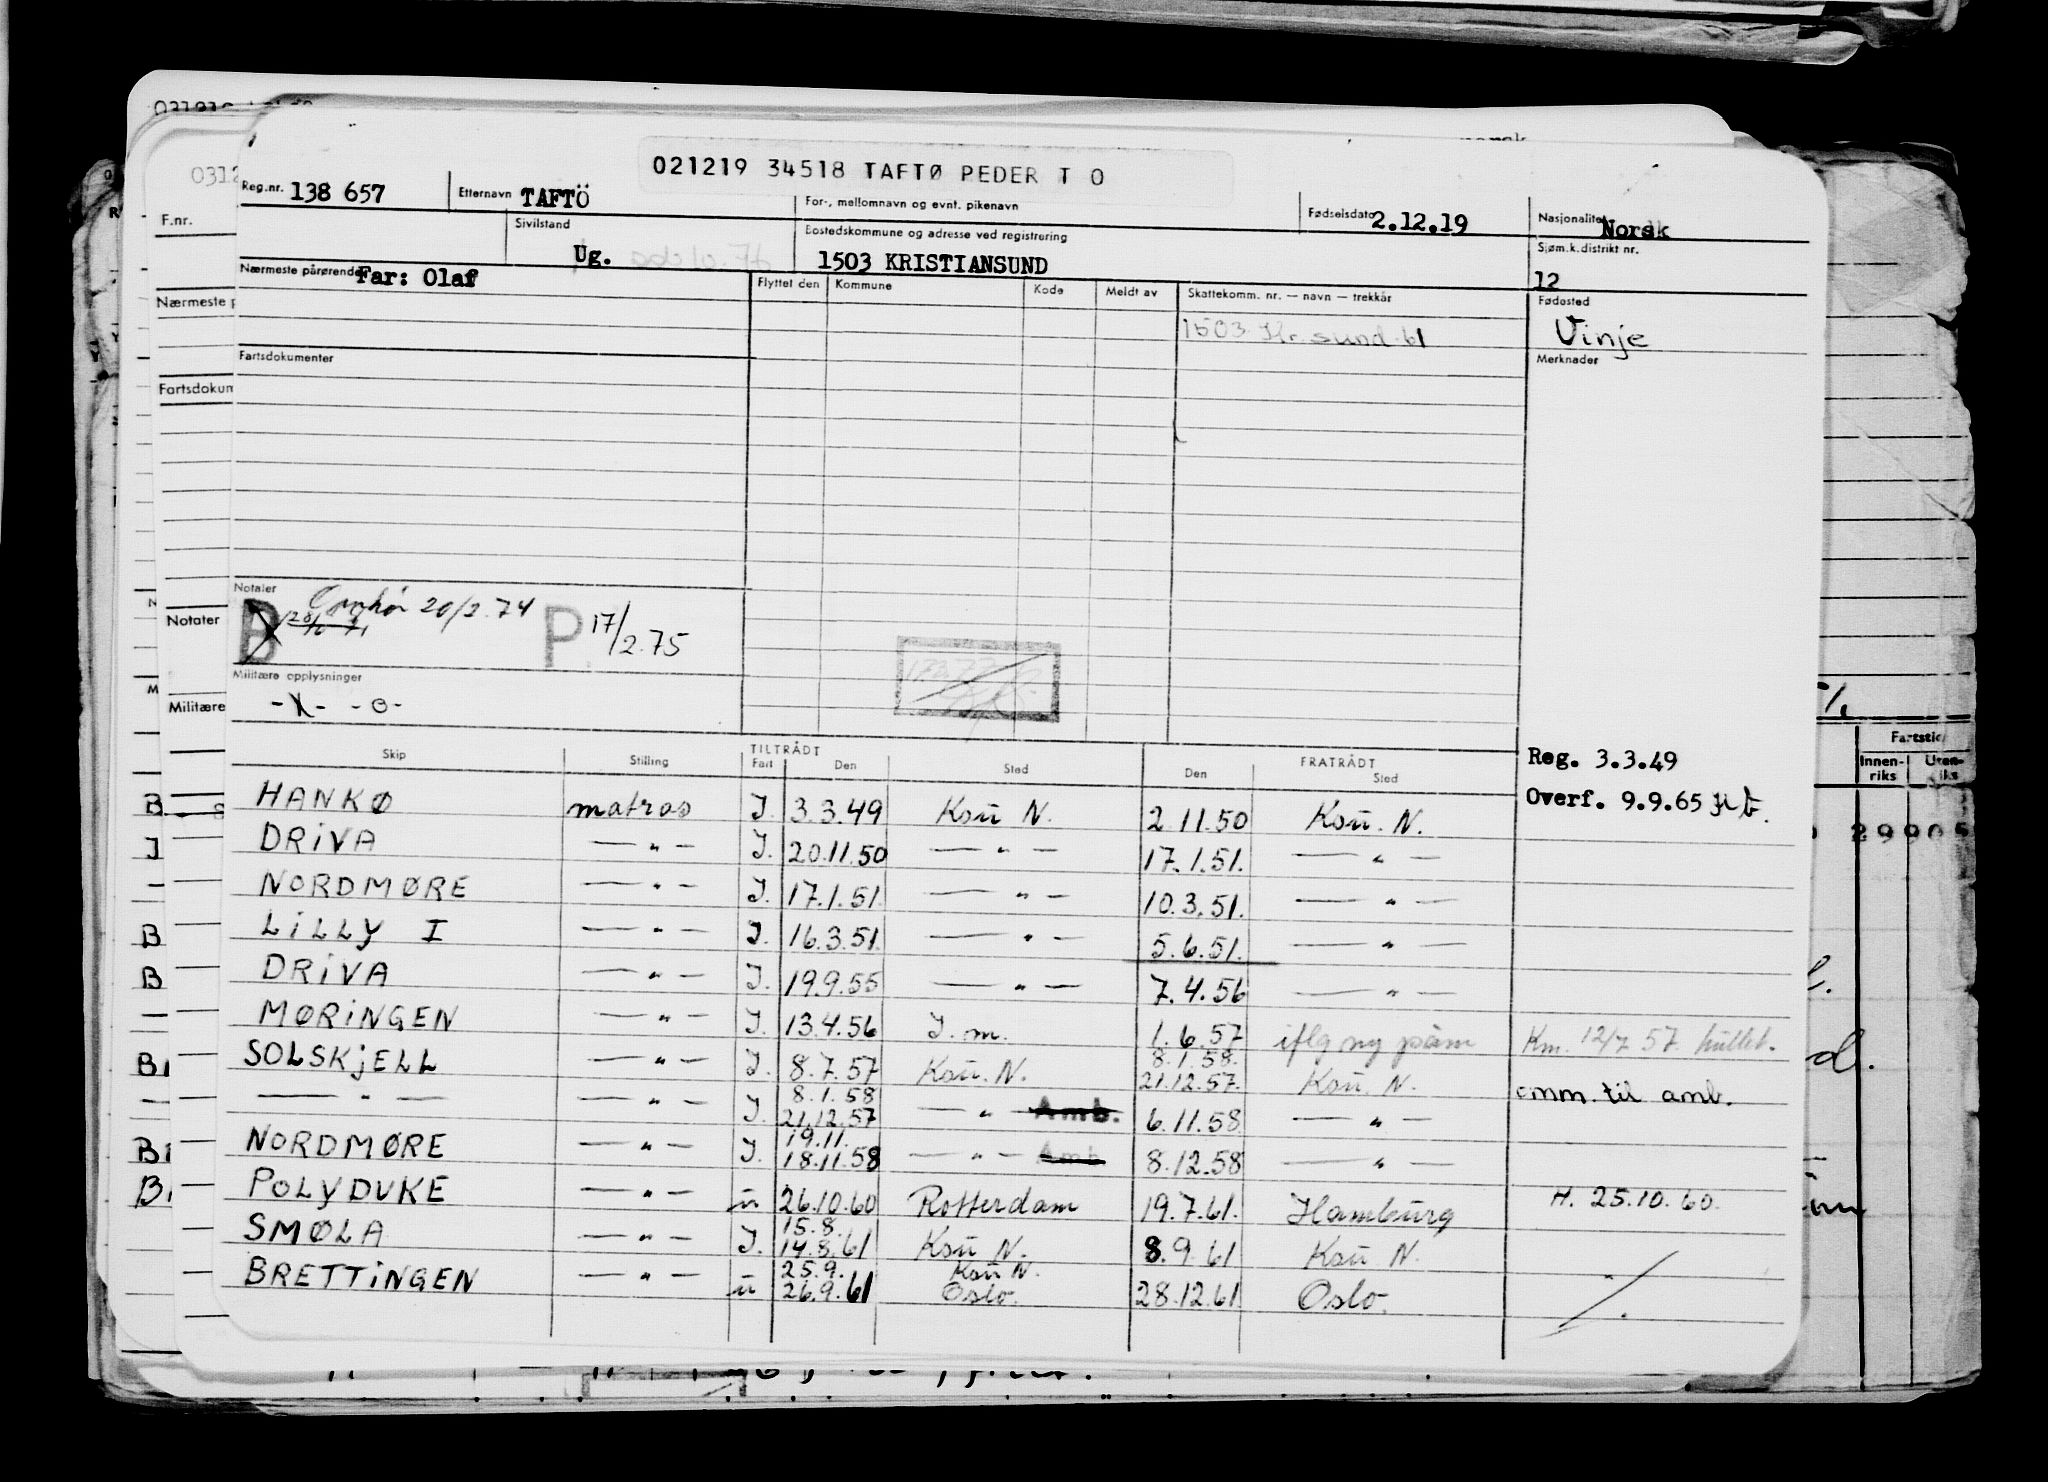 021219 34518 TAFTØ PEDER T O
Reg.nr. 138 657
Etternavn TAFTÖ
For-, mellomnavn og evnt. pikenavn
Fødselsdato 2.12.19
Nasjonalitet Norsk
Sivilstand Ug.
Bostedskommune og adresse ved registrering
1503 KRISTIANSUND
Sjøm.k.distrikt nr.
12
Nærmeste pårørende Far: Olaf
Flyttet den Kommune Kode Meldt av Skattekomm. nr. — navn — trekkår
1503 Kr.sund 61
Fødested
Vinje
Fartsdokumenter
Merknader
Notater
B 20/2.74 P 17/2.75
Militære opplysninger
-X- -o-
Skip Stilling TILTRÅDT Fart Den Sted FRATRÅDT Den Sted
Reg. 3.3.49
Overf. 9.9.65
HANKØ matros I. 3.3.49 Ksu N. 2.11.50 Ksu. N.
DRIVA — " — I. 20.11.50 — " — 17.1.51. — " —
NORDMØRE — " — I. 17.1.51. — " — 10.3.51. — " —
LILLY I — " — I. 16.3.51. — " — 5.6.51. — " —
DRIVA — " — I. 19.9.55 — " — 7.4.56 — " —
MØRINGEN — " — I. 13.4.56 I. m. 1.6.57 iflg ny påm Km. 12/7 57
SOLSKJELL — " — I. 8.7.57 Ksu. N. 8.1.58. 21.12.57. Ksu. N. omm. til amb.
— " — — " — I. 8.1.58 21.12.57 — " — Amb. 6.11.58 — " —
NORDMØRE — " — I. 19.11. 18.11.58 — " — Amb 8.12.58 — " —
POLYDUKE — " — u 26.10.60 Rotterdam 19.7.61. Hamburg H. 25.10.60.
SMØLA — " — I. 15.8. 14.8.61 Ksu N. 8.9.61 Ksu N.
BRETTINGEN — " — u 25.9. 26.9.61 Ksu N. Oslo. 28.12.61 Oslo.
F.nr.
Nærmeste p
Fartsdokum
Notater
Militære
Fartstid
Innen-riks Uten-riks